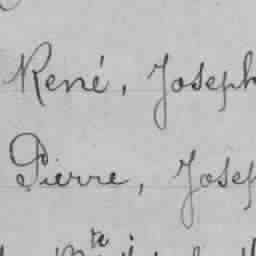 René, Joseph
Pierre, Josep